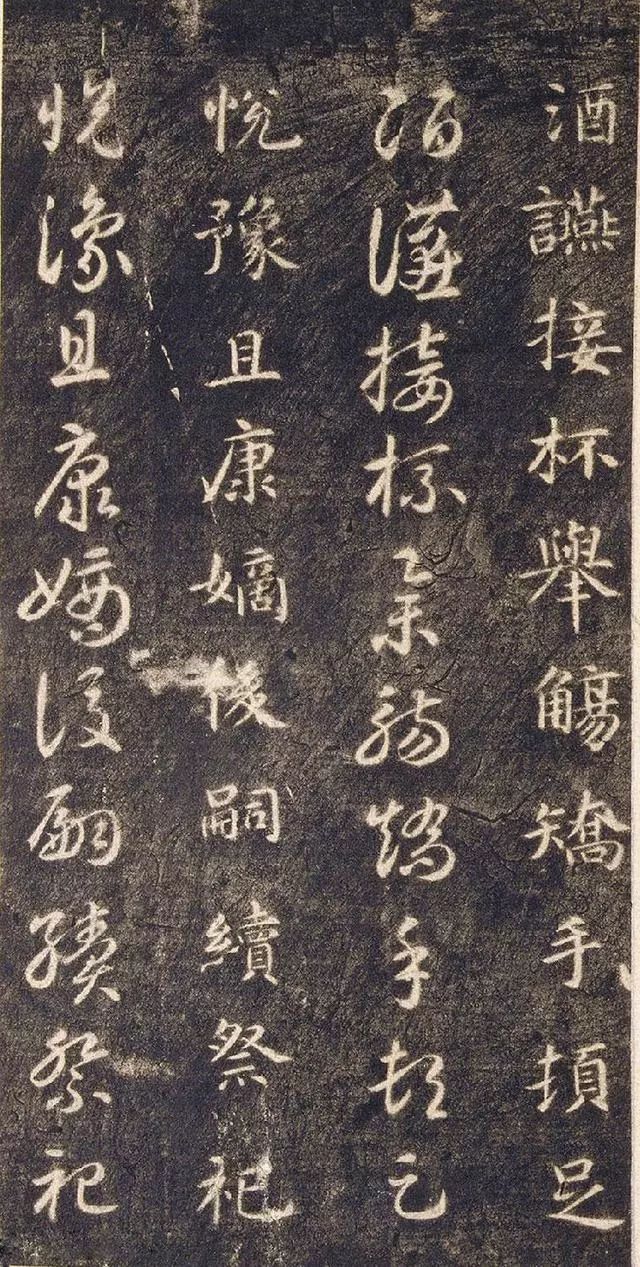 酒讌接杯舉觴矯手頓足
酒讌接杯舉觴矯手頓足
悅豫且康嫡後嗣續祭祀
悅豫且康嫡後嗣續祭祀